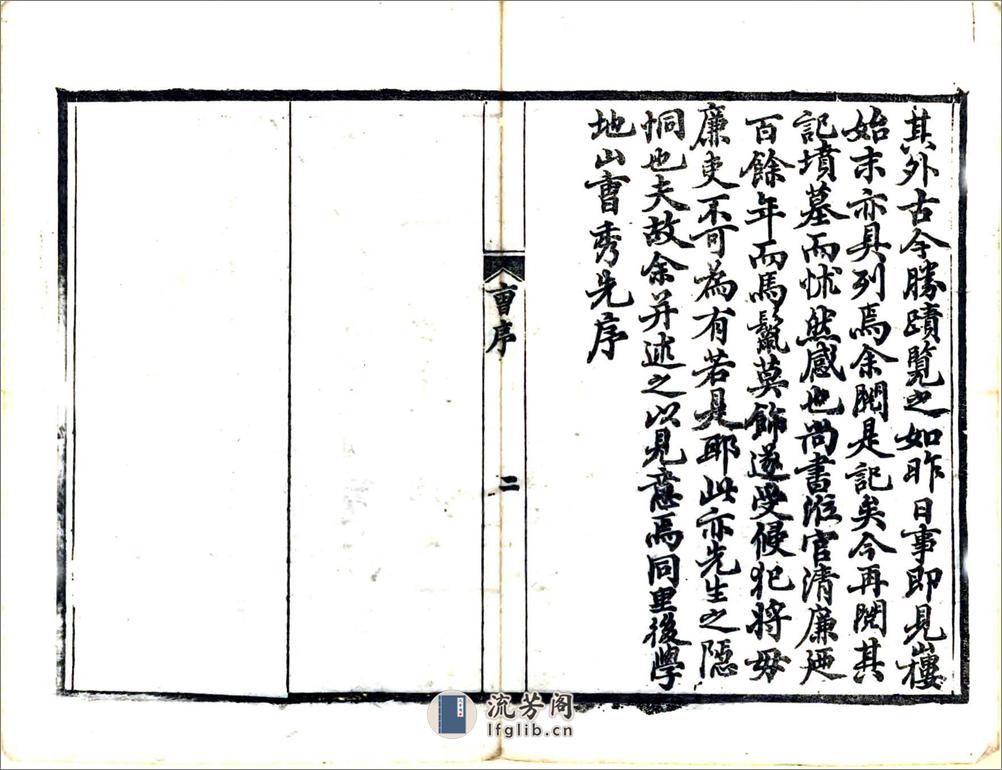 其外古今勝蹟覽之如昨日事即見山樓
始末亦具列焉余閱是記矣今再閱其
記墳墓而怵然感也尚書涖官清廉迺
百餘年而馬鬣莫飾遂受侵犯將毋
廉吏不可為有若是耶此亦先生之隱
恫也夫故余并述之以見意焉同里後學
地山曹秀先序
曹序
二
流芳阁
lfglib.cn